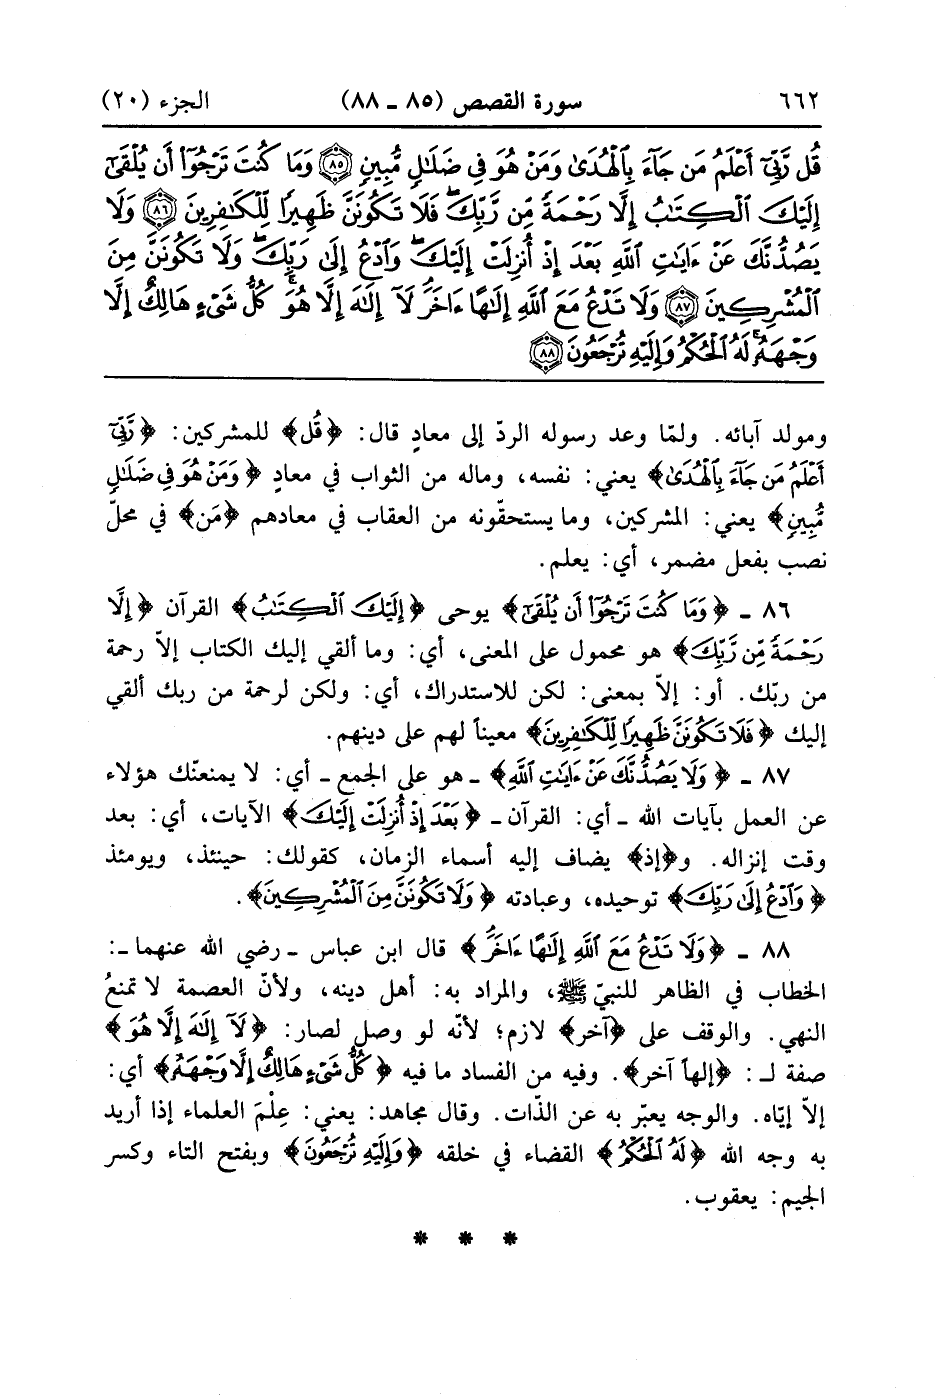 ٦٦٢ سورة القصص (٨٥ ـ ٨٨) الجزء (٢٠)
قُل رَّبِّىٓ أَعْلَمُ مَن جَآءَ بِٱلْهُدَىٰ وَمَنْ هُوَ فِى ضَلَٰلٍ مُّبِينٍ ٨٥ وَمَا كُنتَ تَرْجُوٓا۟ أَن يُلْقَىٰٓ
إِلَيْكَ ٱلْكِتَٰبُ إِلَّا رَحْمَةً مِّن رَّبِّكَ ۖ فَلَا تَكُونَنَّ ظَهِيرًا لِّلْكَٰفِرِينَ ٨٦ وَلَا
يَصُدُّنَّكَ عَنْ ءَايَٰتِ ٱللَّهِ بَعْدَ إِذْ أُنزِلَتْ إِلَيْكَ ۖ وَٱدْعُ إِلَىٰ رَبِّكَ ۖ وَلَا تَكُونَنَّ مِنَ
ٱلْمُشْرِكِينَ ٨٧ وَلَا تَدْعُ مَعَ ٱللَّهِ إِلَٰهًا ءَاخَرَ ۘ لَآ إِلَٰهَ إِلَّا هُوَ ۚ كُلُّ شَىْءٍ هَالِكٌ إِلَّا
وَجْهَهُۥ ۚ لَهُ ٱلْحُكْمُ وَإِلَيْهِ تُرْجَعُونَ ٨٨
ومولد آبائه. ولمّا وعد رسوله الردّ إلى معادٍ قال: ﴿قُل﴾ للمشركين: ﴿رَّبِّىٓ
أَعْلَمُ مَن جَآءَ بِٱلْهُدَىٰ﴾ يعني: نفسه، وماله من الثواب في معادٍ ﴿وَمَنْ هُوَ فِى ضَلَٰلٍ
مُّبِينٍ﴾ يعني: المشركين، وما يستحقّونه من العقاب في معادهم ﴿مَن﴾ في محلّ
نصب بفعل مضمر، أي: يعلم.
٨٦ ـ ﴿وَمَا كُنتَ تَرْجُوٓا۟ أَن يُلْقَىٰٓ﴾ يوحى ﴿إِلَيْكَ ٱلْكِتَٰبُ﴾ القرآن ﴿إِلَّا
رَحْمَةً مِّن رَّبِّكَ﴾ هو محمول على المعنى، أي: وما ألقي إليك الكتاب إلاّ رحمة
من ربّك. أو: إلاّ بمعنى: لكن للاستدراك، أي: ولكن لرحمة من ربك ألقي
إليك ﴿فَلَا تَكُونَنَّ ظَهِيرًا لِّلْكَٰفِرِينَ﴾ معيناً لهم على دينهم.
٨٧ ـ ﴿وَلَا يَصُدُّنَّكَ عَنْ ءَايَٰتِ ٱللَّهِ﴾ ـ هو على الجمع ـ أي: لا يمنعنّك هؤلاء
عن العمل بآيات الله ـ أي: القرآن ـ ﴿بَعْدَ إِذْ أُنزِلَتْ إِلَيْكَ﴾ الآيات، أي: بعد
وقت إنزاله. و﴿إذ﴾ يضاف إليه أسماء الزمان، كقولك: حينئذ، ويومئذ
﴿وَٱدْعُ إِلَىٰ رَبِّكَ﴾ توحيده، وعبادته ﴿وَلَا تَكُونَنَّ مِنَ ٱلْمُشْرِكِينَ﴾.
٨٨ ـ ﴿وَلَا تَدْعُ مَعَ ٱللَّهِ إِلَٰهًا ءَاخَرَ ۘ﴾ قال ابن عباس ـ رضي الله عنهما ـ:
الخطاب في الظاهر للنبيّ ﷺ، والمراد به: أهل دينه، ولأنّ العصمة لا تمنعُ
النهي. والوقف على ﴿آخر﴾ لازم؛ لأنّه لو وصل لصار: ﴿لَآ إِلَٰهَ إِلَّا هُوَ﴾
صفة لـ: ﴿إلهاً آخر﴾. وفيه من الفساد ما فيه ﴿كُلُّ شَىْءٍ هَالِكٌ إِلَّا وَجْهَهُۥ﴾ أي:
إلاّ إيّاه. والوجه يعبّر به عن الذّات. وقال مجاهد: يعني: عِلْمَ العلماء إذا أريد
به وجه الله ﴿لَهُ ٱلْحُكْمُ﴾ القضاء في خلقه ﴿وَإِلَيْهِ تُرْجَعُونَ﴾ وبفتح التاء وكسر
الجيم: يعقوب.
* * *